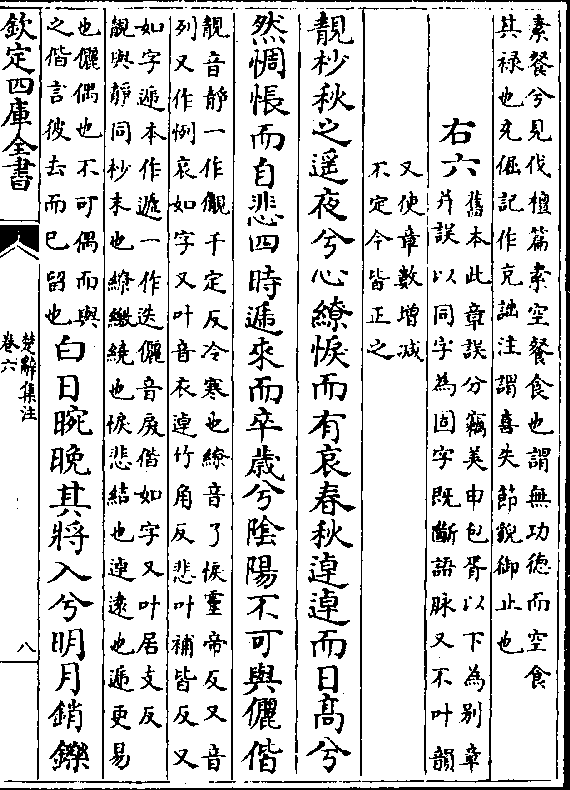 素餐兮見伐檀篇素空餐食也謂無功德而空食
其祿也充倔記作充詘注謂喜失節貌御止也
右六
舊本此章誤分竊美申包胥以下為别章
并誤以同字為固字既斷語脉又不叶韻
又使章數增减
不定今皆正之
靚杪秋之遥夜兮心繚悷而有哀春秋逴逴而日高兮
然惆悵而自悲四時遞來而卒歲兮隂陽不可與儷偕
靚音靜一作覼千定反冷寒也繚音了悷靈帝反又音
列又作悷哀如字又叶音衣逴竹角反悲叶補皆反又
如字遞本作遰一作迭儷音戾偕如字又叶居支反
靚與靜同杪末也繚繳繞也悷悲結也逴遠也遞更易
也儷偶也不可偶而與
之偕言彼去而已留也
白日晼晚其將入兮明月銷鑠
欽定四庫全書
楚辭集注
卷六
八